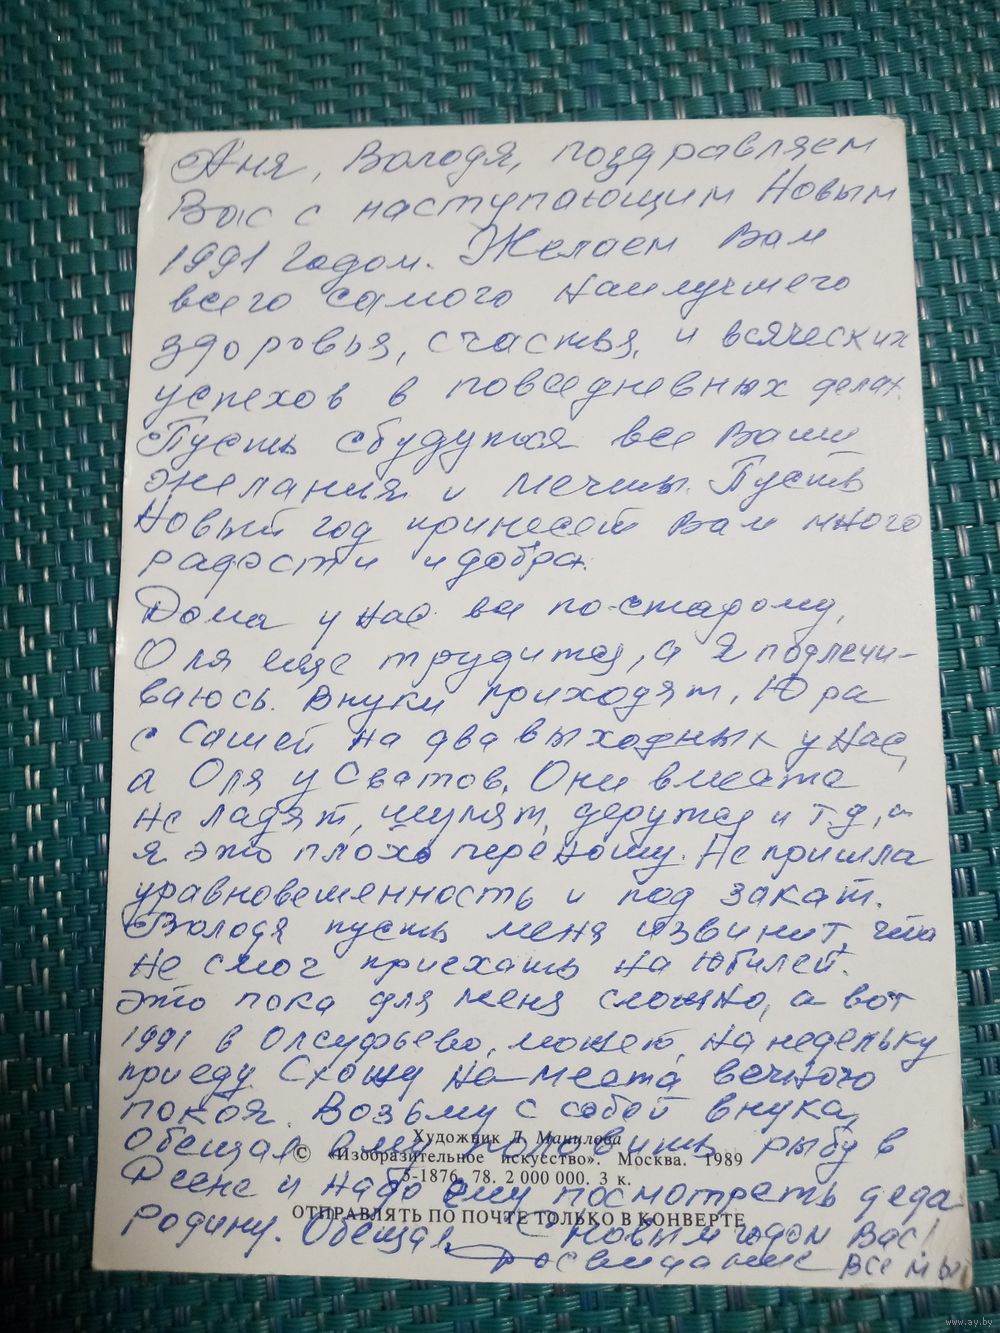 Аня, Володя, поздравляем
Вас с наступающим Новым
1991 годом. Желаем Вам
всего самого наилучшего
здоровья, счастья, и всяческих
успехов в повседневных делах.
Пусть сбудутся все Ваши
желания и мечты. Пусть
Новый год принесет Вам много
радости и добра.
Дома у нас все по-старому,
Оля еще трудится, а я подлечи-
ваюсь. Внуки приходят, Юра
с Сашей на два выходных у нас,
а Оля у Сватов. Они вместе
не ладят, шумят, дерутся и т.д., а
я это плохо переношу. Не пришла
уравновешенность и под закат.
Володя пусть меня извинит, что
не смог приехать на юбилей.
Это пока для меня сложно, а вот
1991 в Олсуфьево, может, на недельку
приеду. Схожу на места вечного
покоя. Возьму с собой внука,
Обещал ему половить рыбу в
Художник Л. Манилова
© «Изобразительное искусство». Москва. 1989
5-1876. 78. 2 000 000. 3 к.
Десне и надо ему посмотреть деда
ОТПРАВЛЯТЬ ПО ПОЧТЕ ТОЛЬКО В КОНВЕРТЕ
родину. Обещал. С новым годом Вас!
Досвидание все мы
www.ay.by